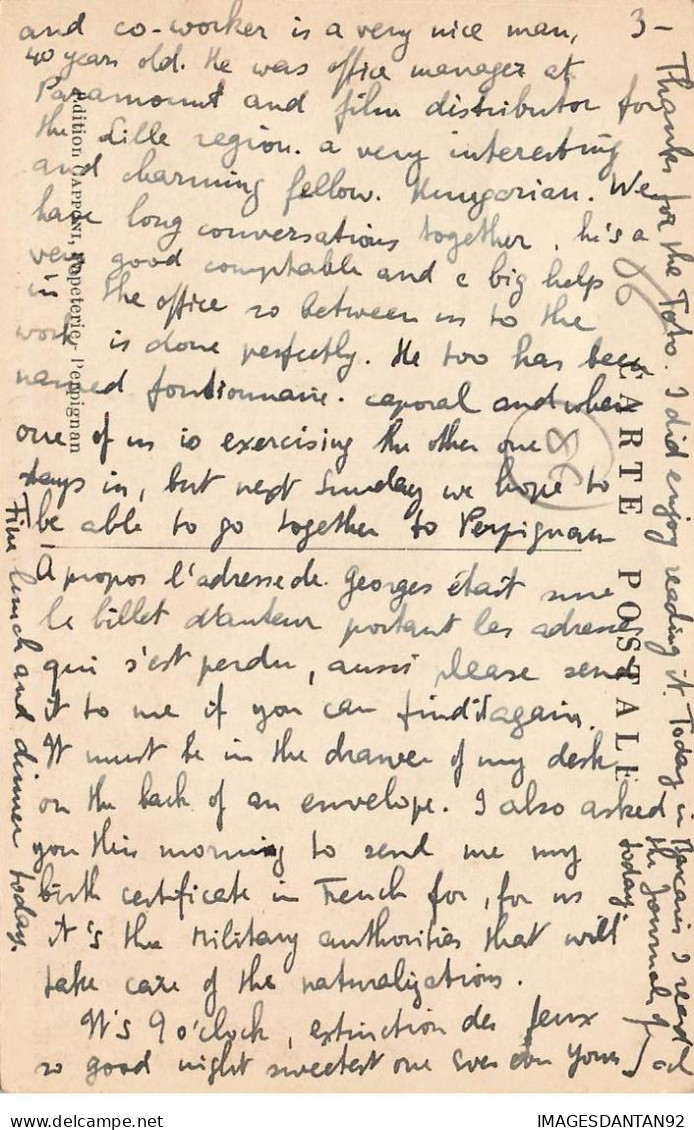 3-
and co-worker is a very nice man,
40 years old. He was office manager at
Paramount and film distributor for
the Lille region. a very interesting
and charming fellow. Hungarian. We
have long conversations together, he's a
very good comptable and a big help
in the office so between us to the
work is done perfectly. He too has been
named fontionnaire. caporal and when
one of us is exercising the other one
stays in, but next Sunday we hope to
be able to go together to Perpignan
A propos l'adresse de Georges était sur
le billet d'auteur portant les adresses
qui s'est perdu, aussi please send
it to me if you can find it again.
It must be in the drawer of my desk
on the back of an envelope. I also asked
you this morning to send me my
birth certificate in French for, for us
it's the Military authorities that will
take care of the naturalizations.
It's 9 o'clock, extinction des feux
so good night sweetest one Ever own Yours J
Thanks for the Toto. I did enjoy reading it. Today in Barcarès I read
the Journal of
today.
Fine lunch and dinner today.
CARTE POSTALE
Edition CAPPONI, Papeterie, Perpignan
86
86
IMAGESDANTAN92